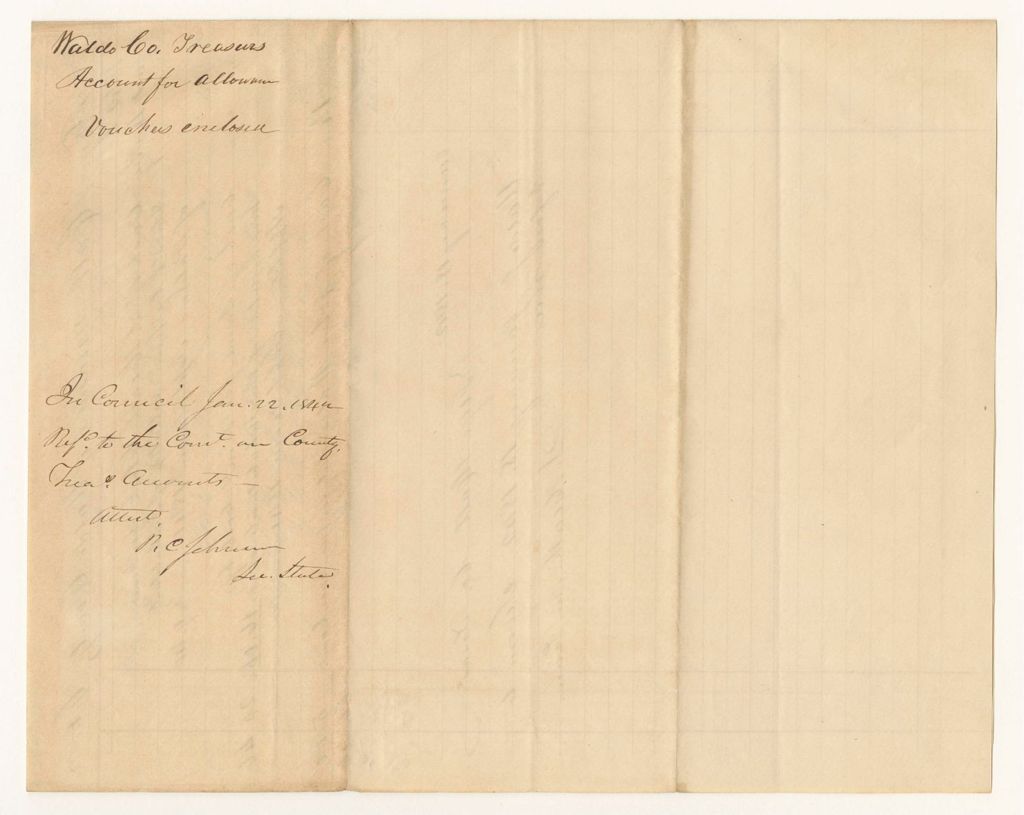 Waldo Co. Treasurs
Account for allowance
Vouchers enclosed
In Council Jan. 22. 1842
Refd. to the Comt. on County
Treas. Accounts —
Attest,
P. C. Johnson
Sec. State.